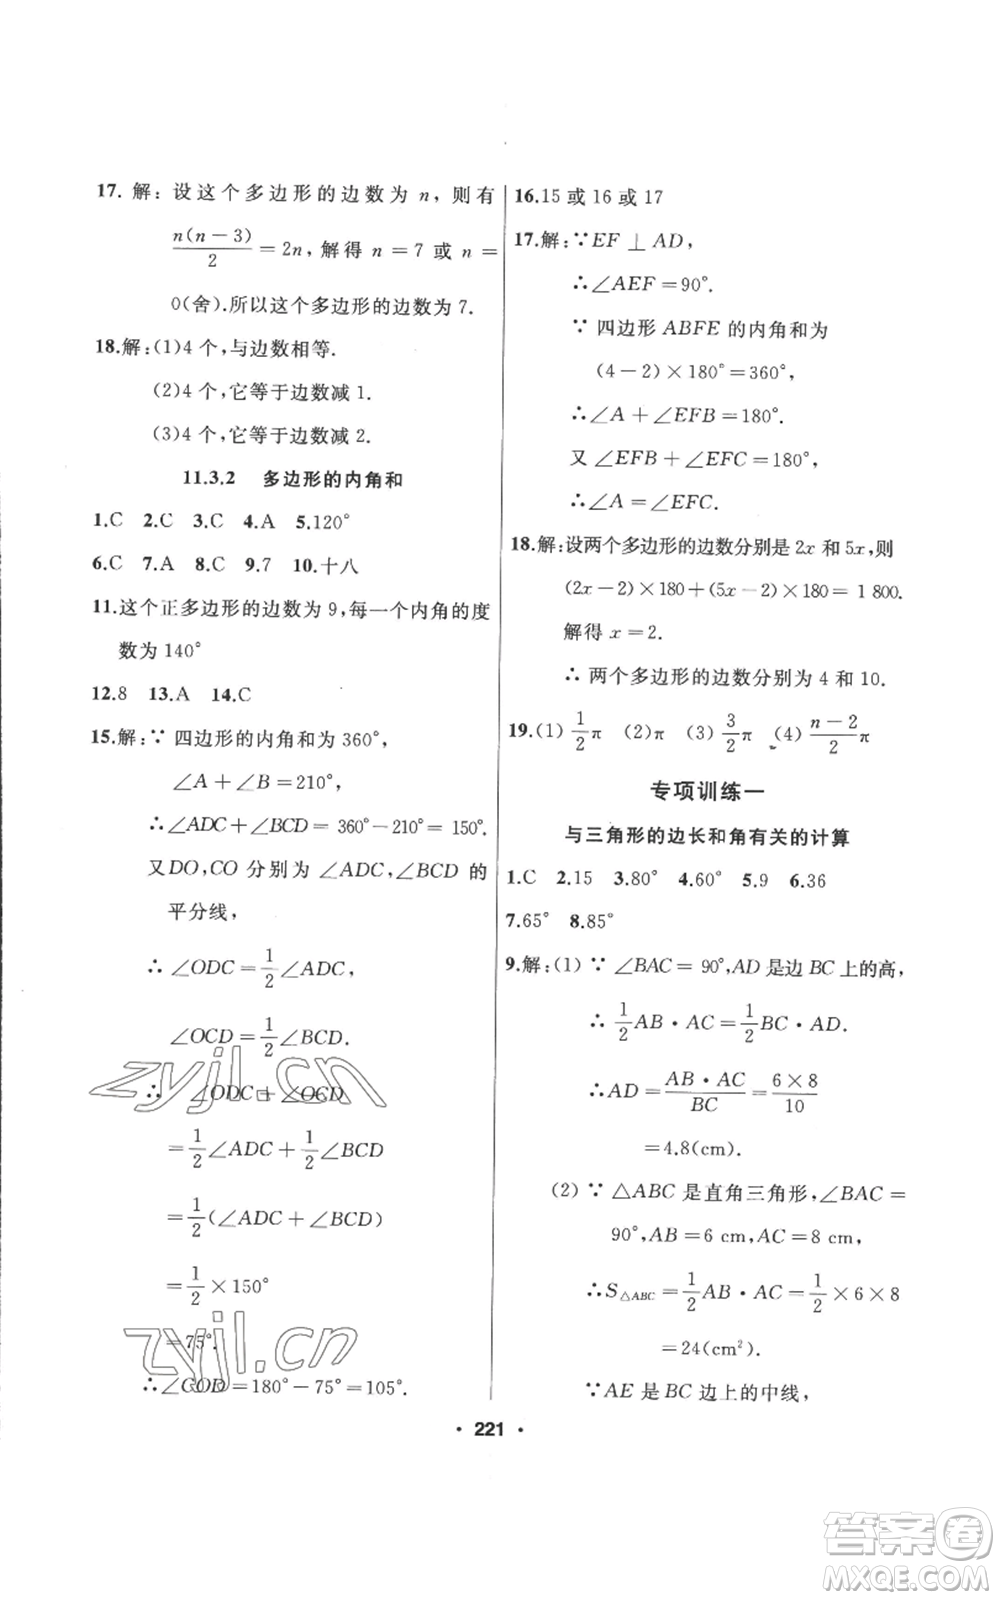 17. 解:设这个多边形的边数为 n，则有
n(n－3)/2＝2n，解得 n＝7 或 n＝
0(舍).所以这个多边形的边数为 7.
18.解:(1)4 个,与边数相等.
(2)4 个,它等于边数减 1.
(3)4 个,它等于边数减 2.
11.3.2 多边形的内角和
1.C 2.C 3.C 4.A 5.120°
6.C 7.A 8.C 9.7 10.十八
11.这个正多边形的边数为 9,每一个内角的度
数为 140°
12.8 13.A 14.C
15.解:∵ 四边形的内角和为 360°,
∠A＋∠B＝210°,
∴∠ADC＋∠BCD＝360°－210°＝150°.
又DO,CO 分别为 ∠ADC,∠BCD 的
平分线,
∴ ∠ODC＝1/2∠ADC,
∠OCD＝1/2∠BCD.
∴ ∠ODC＋∠OCD
＝1/2∠ADC＋1/2∠BCD
＝1/2(∠ADC＋∠BCD)
＝1/2×150°
＝75°.
∴∠COD＝180°－75°＝105°.
16.15 或 16 或 17
17.解:∵EF⊥AD,
∴∠AEF＝90°.
∵ 四边形 ABFE 的内角和为
(4－2)×180°＝360°,
∴∠A＋∠EFB＝180°.
又 ∠EFB＋∠EFC＝180°,
∴∠A＝∠EFC.
18.解:设两个多边形的边数分别是 2x 和 5x,则
(2x－2)×180＋(5x－2)×180＝1 800.
解得 x＝2.
∴ 两个多边形的边数分别为 4 和 10.
19.(1) 1/2π (2)π (3) 3/2π (4) (n－2)/2π
专项训练一
与三角形的边长和角有关的计算
1.C 2.15 3.80° 4.60° 5.9 6.36
7.65° 8.85°
9.解:(1) ∵ ∠BAC＝90°,AD 是边 BC 上的高,
∴ 1/2AB·AC＝1/2BC·AD.
∴AD＝AB·AC/BC＝6×8/10
＝4.8(cm).
(2) ∵ △ABC 是直角三角形,∠BAC＝
90°,AB＝6 cm,AC＝8 cm,
∴S△ABC＝1/2AB·AC＝1/2×6×8
＝24(cm²).
∵AE 是 BC 边上的中线,
• 221 •
zyjl.cn
zyjl.cn
答案卷
MXQE.COM